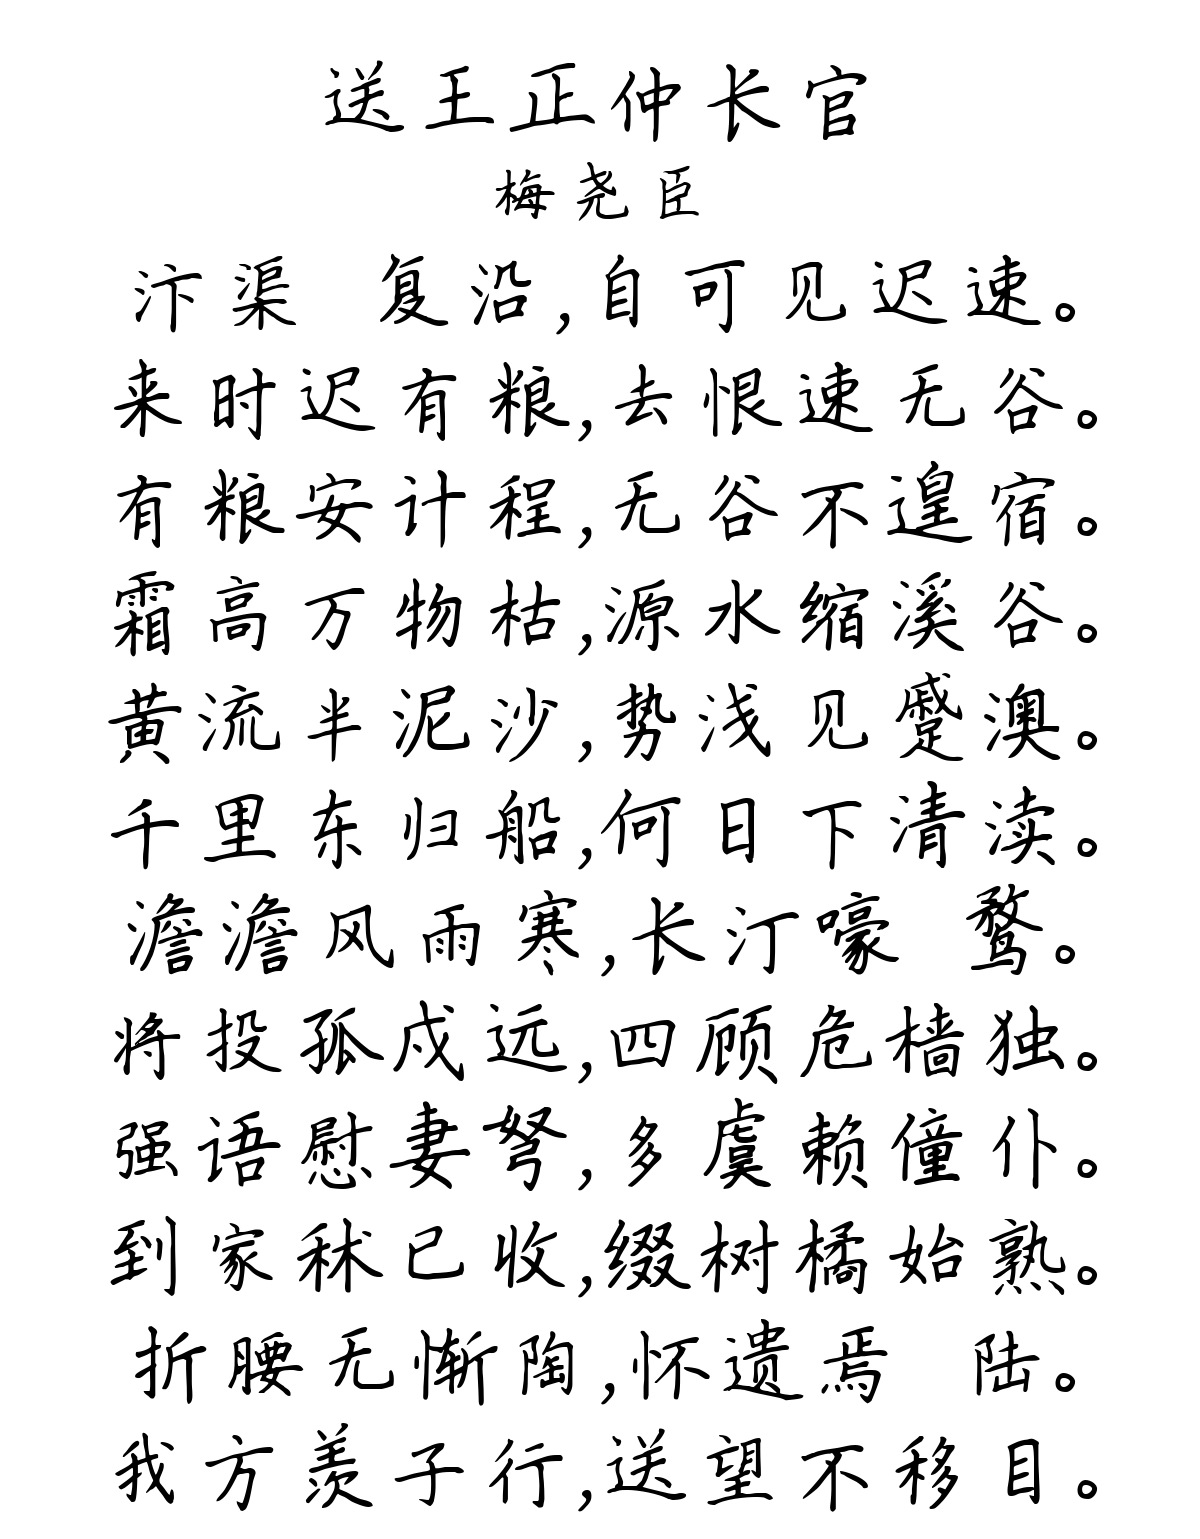 送王正仲长官
梅尧臣
汴渠 复沿,自可见迟速。
来时迟有粮,去恨速无谷。
有粮安计程,无谷不遑宿。
霜高万物枯,源水缩溪谷。
黄流半泥沙,势浅见蹙澳。
千里东归船,何日下清渎。
澹澹风雨寒,长汀嚎 鹜。
将投孤戍远,四顾危樯独。
强语慰妻弩,多虞赖僮仆。
到家秫已收,缀树橘始熟。
折腰无惭陶,怀遗焉 陆。
我方羡子行,送望不移目。